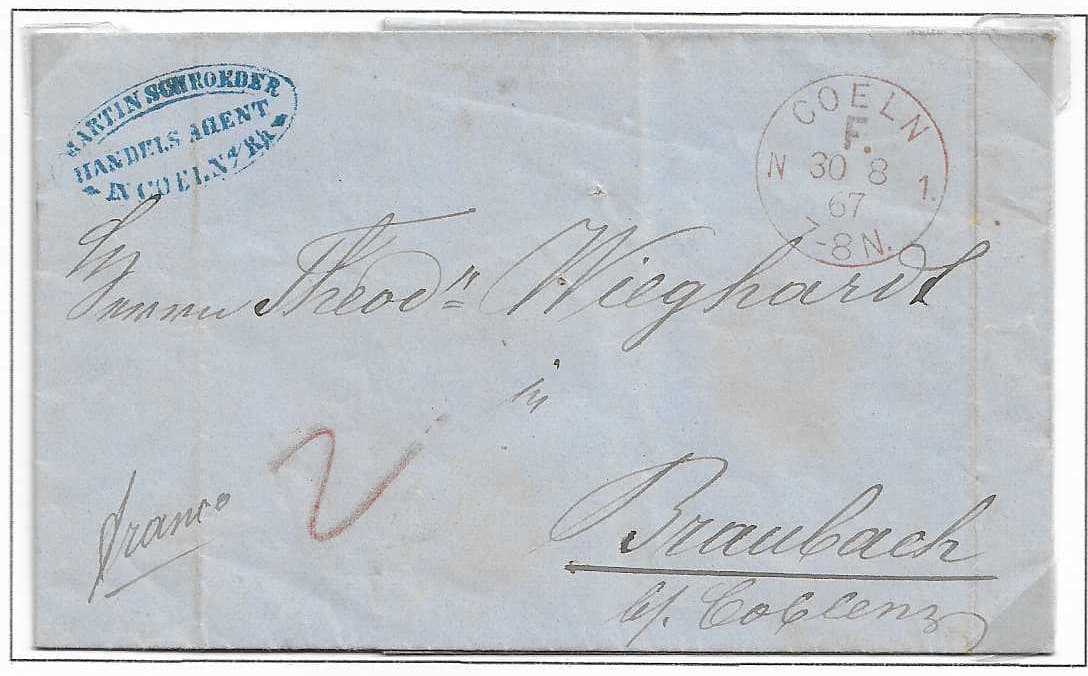 MARTIN SCHROEDER
HANDELS AGENT
IN COELN a/Rh
COELN
F.
N 30 8 1.
67
7-8 N.
Herrn Theodr Wieghardt
in
2
franco
Braubach
b/. Coblenz